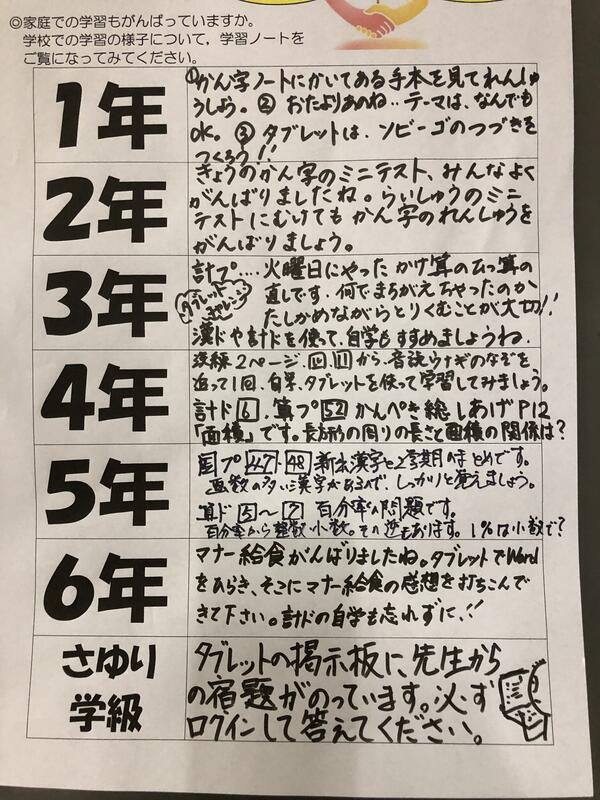 ◎家庭での学習もがんばっていますか。
学校での学習の様子について，学習ノートを
ご覧になってみてください。
1年
①かん字ノートにかいてある手本を見てれんしゅ
うしよう。② おたよりあのね‥テーマは、なんでも
OK。③ タブレットは、ソビーゴのつづきを
つくろう!!
2年
きょうのかん字のミニテスト、みんなよく
がんばりましたね。らいしゅうのミニ
テストにむけても かん字のれんしゅうを
がんばりましょう。
3年
計プ…. 火曜日にやった かけ算のひっ算の
タブレット
チャレンジ
直しです。何でまちがえちゃったのか
たしかめながらとりくむことが大切!!
漢ドや計ドを使って、自学もすすめましょうね。
4年
漢練2ページ、⑩、⑪から、音読ウナギのなぞを
追って1回、自学、タブレットを使って学習してみましょう。
計ド6、算プ52 かんぺき総しあげP12
「面積」です。長方形の周りの長さと面積の関係は?
5年
国プ47 48 新出漢字と2学期のまとめです。
画数の多い漢字があるので、しっかりと覚えましょう。
算ド5〜7 百分率の問題です。
百分率から整数、小数。その逆もあります。1%は小数で?
6年
マナー給食がんばりましたね。タブレットでWord
をひらき、そこにマナー給食の感想を打ちこんで
きて下さい。計ドの自学も忘れずに!!
さゆり
学級
タブレットの掲示板に、先生から
の宿題がのっています。必ず
ログインして答えてください。